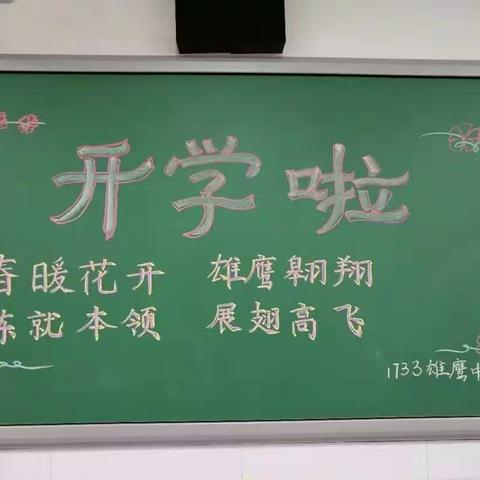 开学啦
春暖花开 雄鹰翱翔
练就本领 展翅高飞
1733雄鹰中